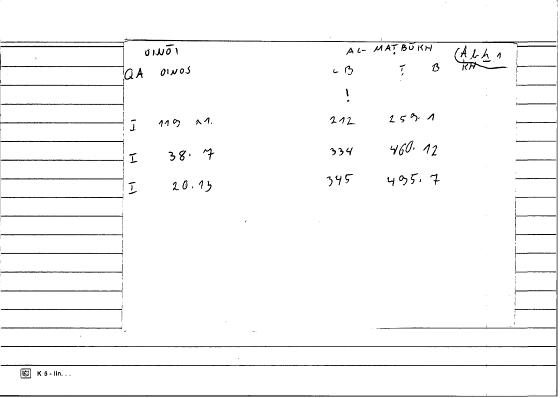 OINŌI AL- MAṬBŪKH
QA OINOS LB Ṭ B KH
!
I 119 212 259 1
I 38. 7 334 460. 12
I 20. 13 345 495. 7
K 5 - lin. . .